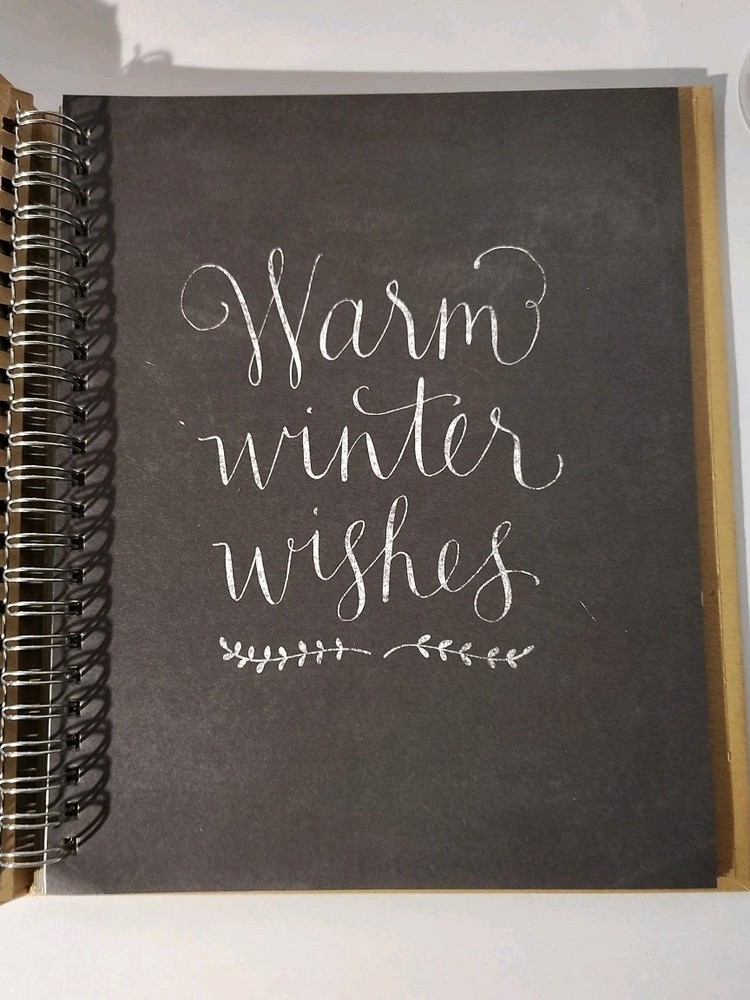 Warm
winter
wishes